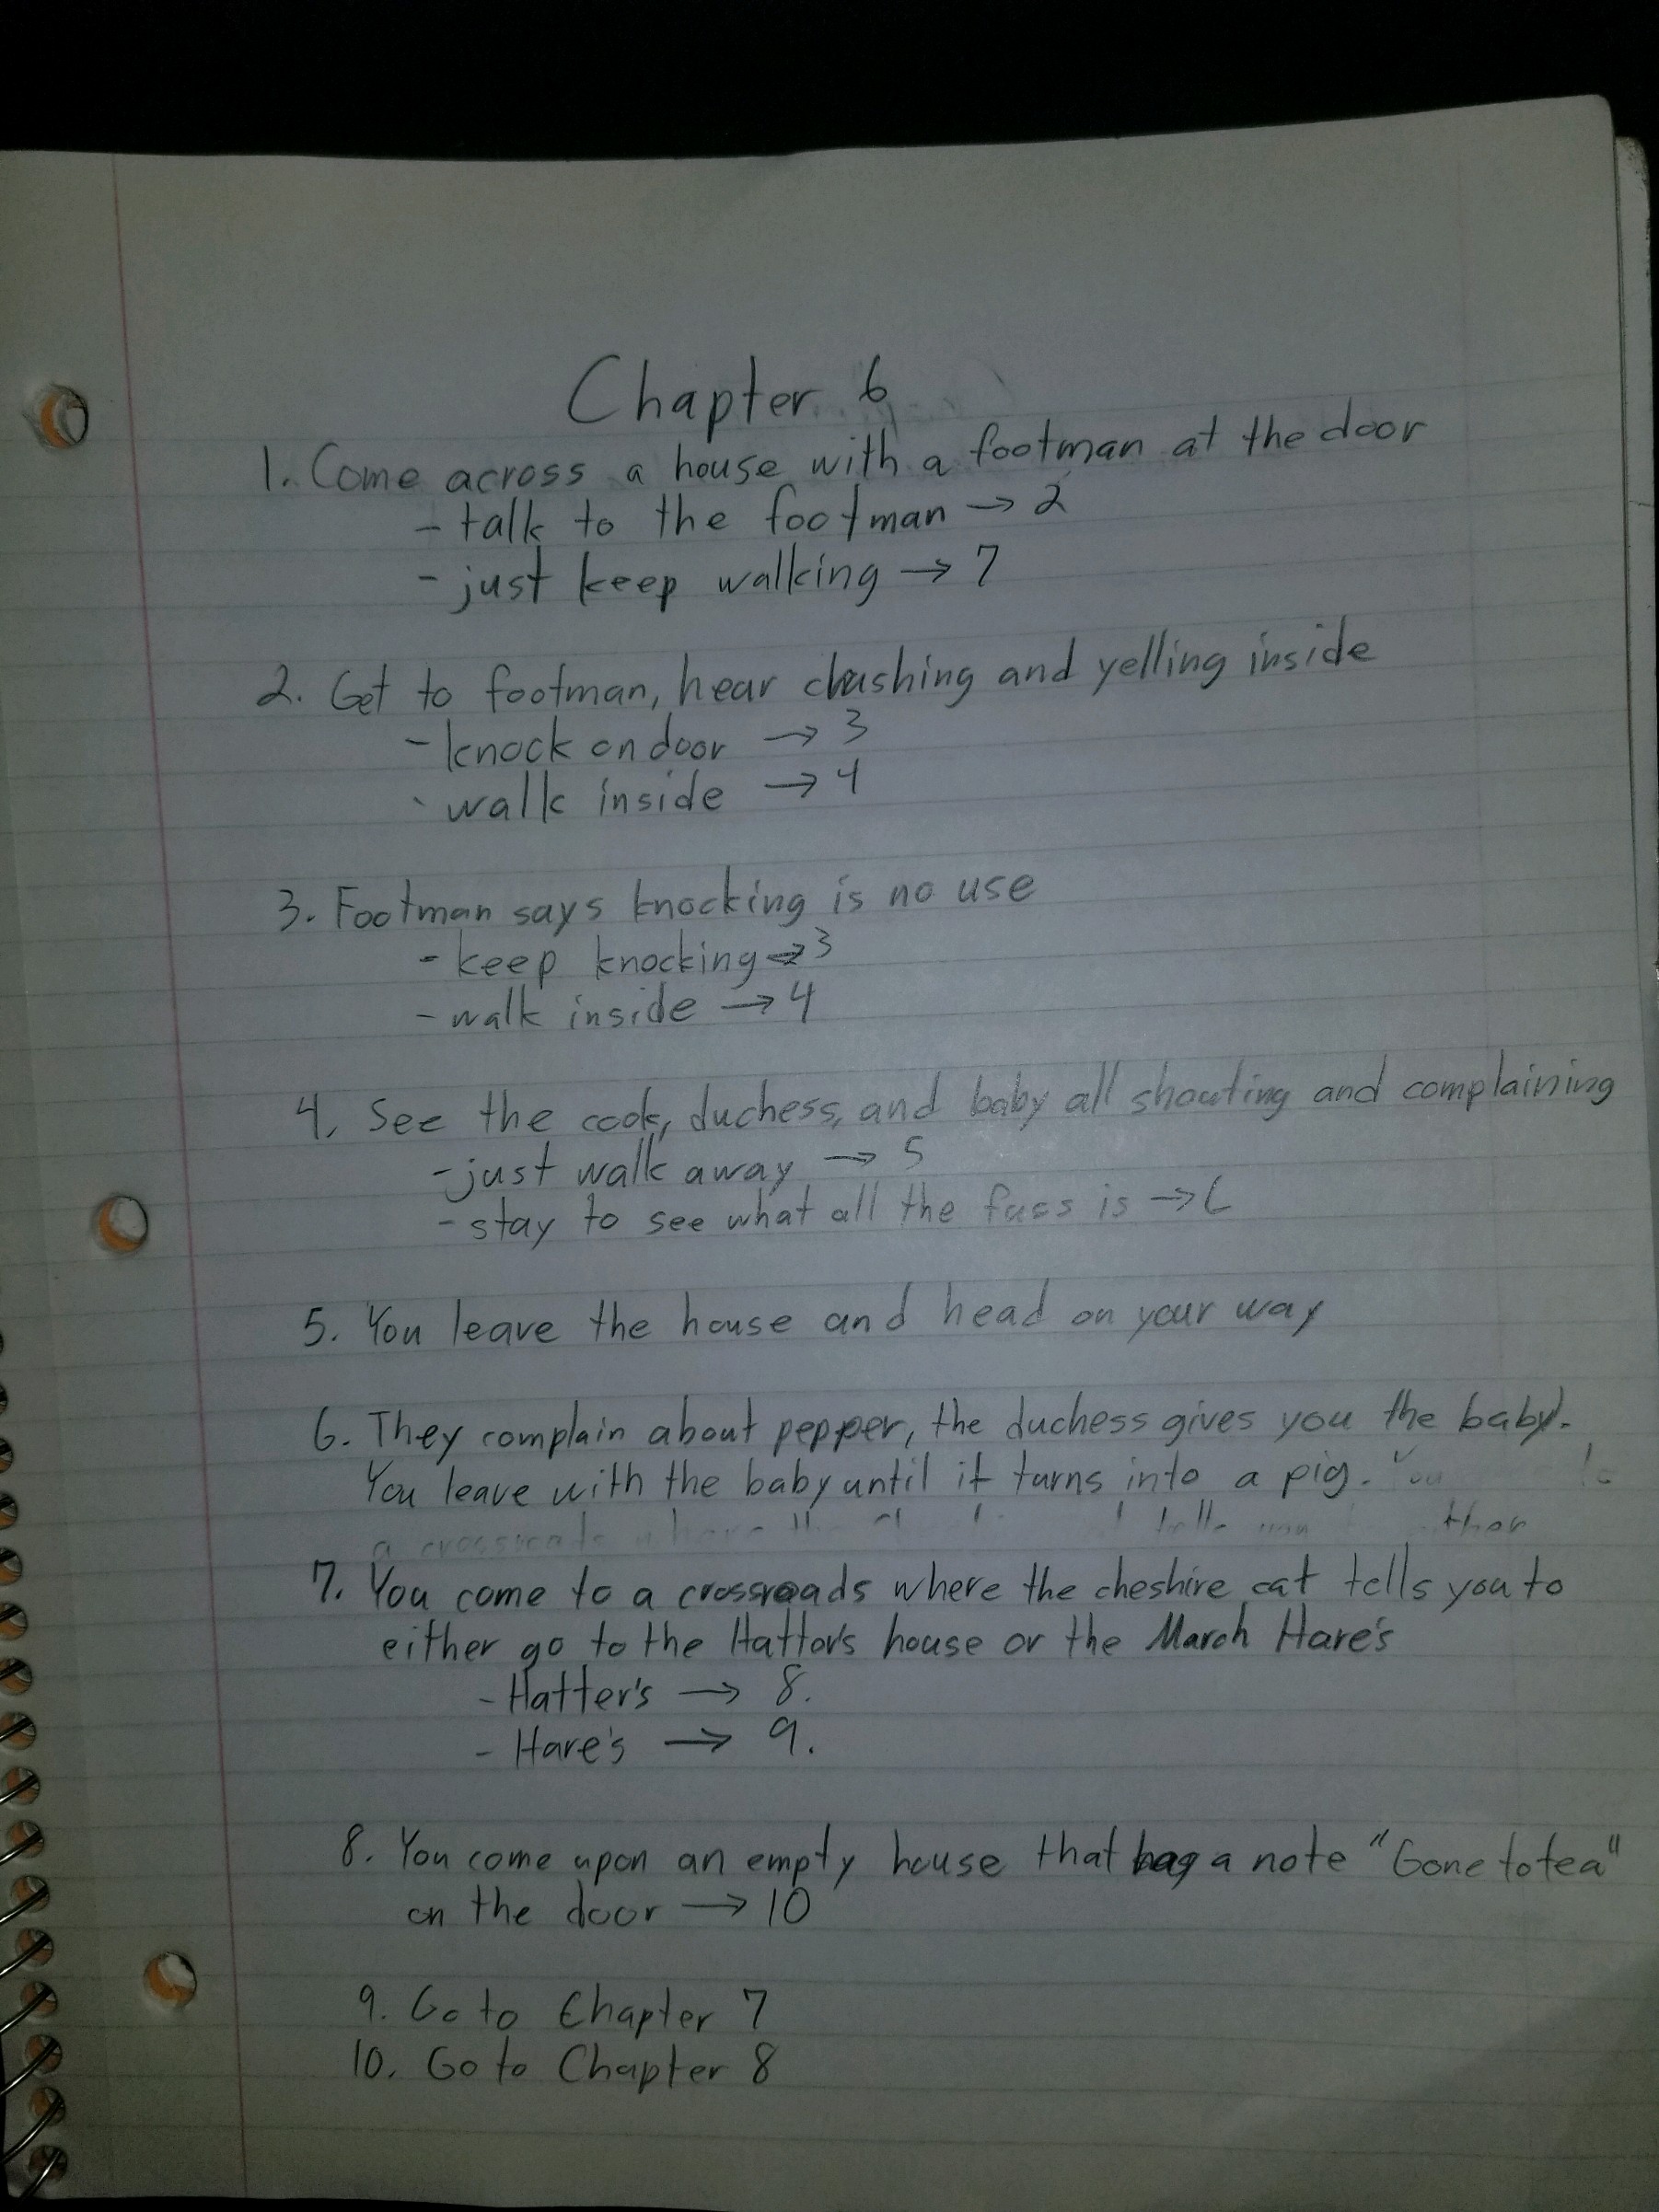 Chapter 6
1. Come across a house with a footman at the door
- talk to the footman → 2
- just keep walking → 7
2. Get to footman, hear crashing and yelling inside
- knock on door → 3
- walk inside → 4
3. Footman says knocking is no use
- keep knocking → 3
- walk inside → 4
4. See the cook, duchess, and baby all shouting and complaining
- just walk away → 5
- stay to see what all the fuss is → 6
5. You leave the house and head on your way
6. They complain about pepper, the duchess gives you the baby.
You leave with the baby until it turns into a pig. You
a crossroads where the tells you
7. You come to a crossroads where the cheshire cat tells you to
either go to the Hattor's house or the March Hare's
- Hatter's → 8.
- Hare's → 9.
8. You come upon an empty house that has a note "Gone to tea"
on the door → 10
9. Go to Chapter 7
10. Go to Chapter 8